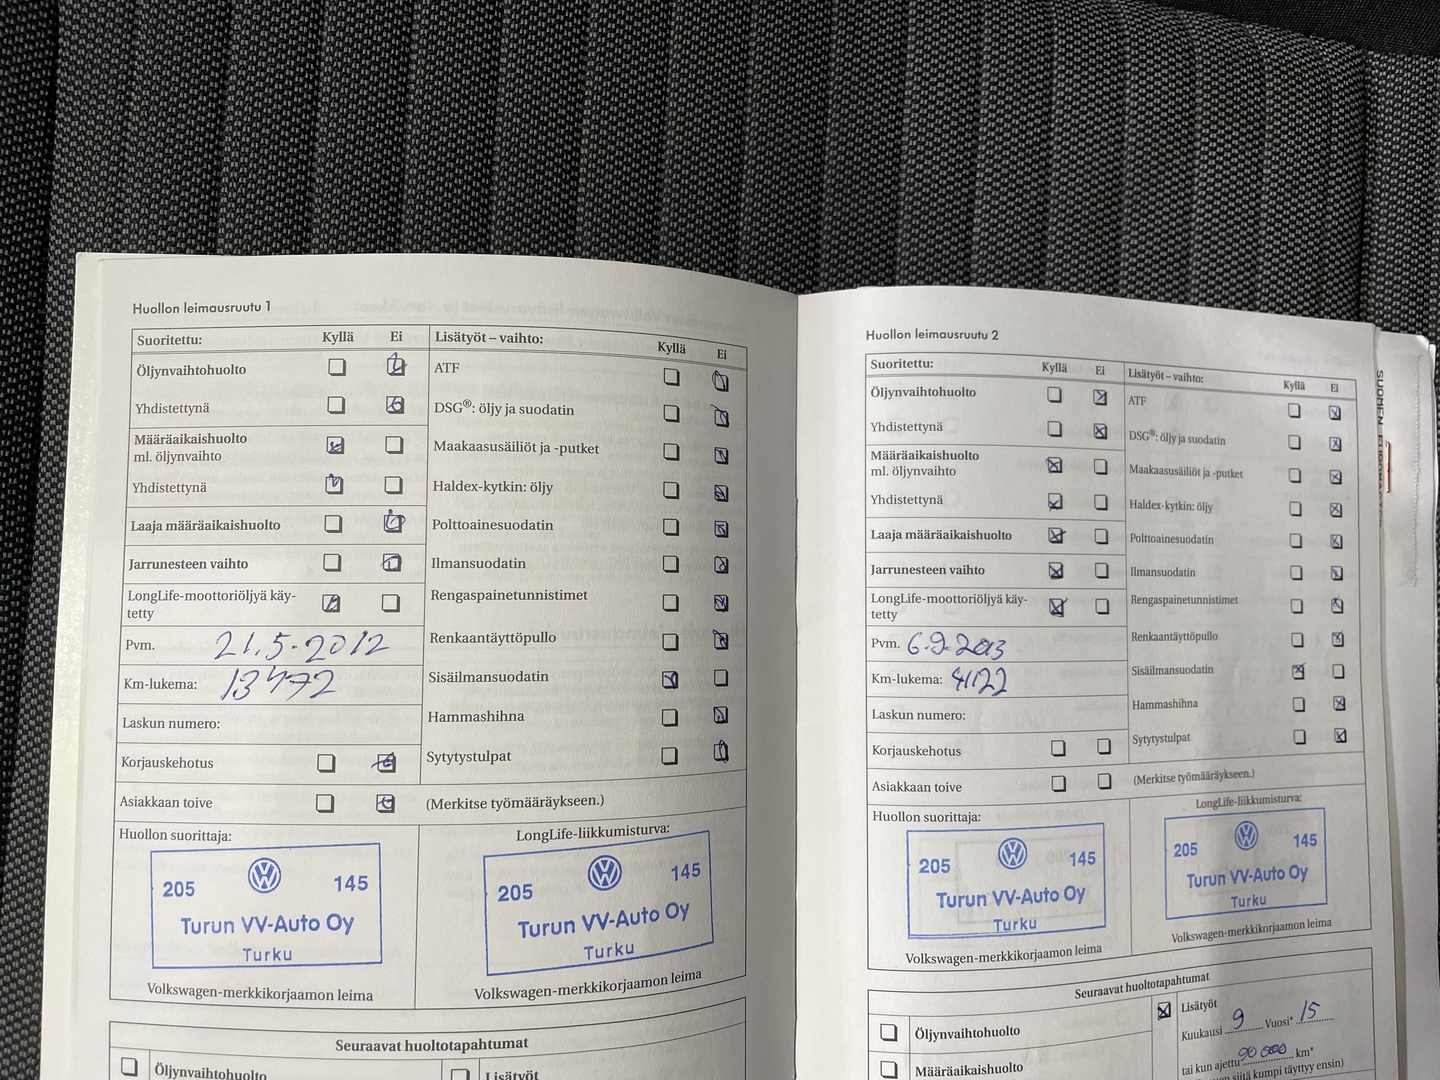 Huollon leimausruutu 1
Suoritettu: Kyllä Ei
Öljynvaihtohuolto
Yhdistettynä
Määräaikaishuolto
ml. öljynvaihto
Yhdistettynä
Laaja määräaikaishuolto
Jarrunesteen vaihto
LongLife-moottoriöljyä käy-
tetty
Pvm. 21.5.2012
Km-lukema: 13472
Laskun numero:
Korjauskehotus
Asiakkaan toive
Lisätyöt – vaihto: Kyllä Ei
ATF
DSG®: öljy ja suodatin
Maakaasusäiliöt ja -putket
Haldex-kytkin: öljy
Polttoainesuodatin
Ilmansuodatin
Rengaspainetunnistimet
Renkaantäyttöpullo
Sisäilmansuodatin
Hammashihna
Sytytystulpat
(Merkitse työmääräykseen.)
Huollon suorittaja:
205 145
Turun VV-Auto Oy
Turku
Volkswagen-merkkikorjaamon leima
LongLife-liikkumisturva:
205 145
Turun VV-Auto Oy
Turku
Volkswagen-merkkikorjaamon leima
Seuraavat huoltotapahtumat
Öljynvaihtohuolto
Lisätyöt
Huollon leimausruutu 2
Suoritettu: Kyllä Ei
Öljynvaihtohuolto
Yhdistettynä
Määräaikaishuolto
ml. öljynvaihto
Yhdistettynä
Laaja määräaikaishuolto
Jarrunesteen vaihto
LongLife-moottoriöljyä käy-
tetty
Pvm. 6.9.2013
Km-lukema: 41122
Laskun numero:
Korjauskehotus
Asiakkaan toive
Lisätyöt – vaihto: Kyllä Ei
ATF
DSG®: öljy ja suodatin
Maakaasusäiliöt ja -putket
Haldex-kytkin: öljy
Polttoainesuodatin
Ilmansuodatin
Rengaspainetunnistimet
Renkaantäyttöpullo
Sisäilmansuodatin
Hammashihna
Sytytystulpat
(Merkitse työmääräykseen.)
Huollon suorittaja:
205 145
Turun VV-Auto Oy
Turku
Volkswagen-merkkikorjaamon leima
LongLife-liikkumisturva:
205 145
Turun VV-Auto Oy
Turku
Volkswagen-merkkikorjaamon leima
Seuraavat huoltotapahtumat
Öljynvaihtohuolto
Määräaikaishuolto
Lisätyöt
Kuukausi 9 Vuosi* 15
tai kun ajettu 90 000 km*
siitä kumpi täyttyy ensin)
SUOMEN